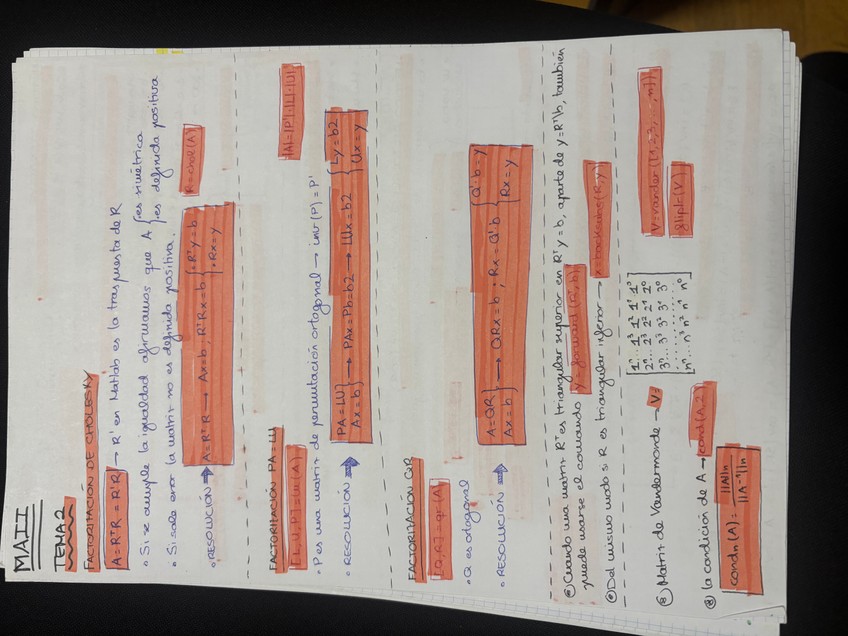 MATI
TEMA 2
FACTORIZACIÓN DE CHOLESKY
A = RᵀR = R'R → R' en Matlab es la traspuesta de R
• Si se cumple la igualdad afirmamos que A { es simétrica
• es definida positiva
• Si sale error la matriz no es definida positiva.
R = chol(A)
• RESOLUCIÓN ⇒ A = RᵀR → Ax = b ; RᵀRx = b { • Rᵀy = b
• Rx = y
FACTORIZACIÓN PA = LU
[L, U, P] = lu(A)
|A| = |P'|·|L|·|U|
• P es una matriz de permutación ortogonal → inv(P) = P'
• RESOLUCIÓN ⇒ PA = LU } → PAx = Pb = b2 → LUx = b2 { Ly = b2
Ax = b } Ux = y
FACTORIZACIÓN QR
[Q, R] = qr(A)
• Q es ortogonal
• RESOLUCIÓN ⇒ A = QR } → QRx = b ; Rx = Q'·b { Q'·b = y
Ax = b } Rx = y
Cuando una matriz Rᵀ es triangular superior en Rᵀy = b, aparte de y = Rᵀ\b, también
puede usarse el comando y = forward(R', b)
Del mismo modo si R es triangular inferior → x = backsubs(R, y)
Matriz de Vandermonde → V =
[1ⁿ ... 1³ 1² 1¹ 1⁰
2ⁿ ... 2³ 2² 2¹ 2⁰
3ⁿ ... 3³ 3² 3¹ 3⁰
nⁿ ... n³ n² n¹ n⁰]
V = vander([1, 2, 3, ..., n])
fliplr(V)
la condición de A → cond(A, 2)
condn(A) = ||A||n / ||A⁻¹||n